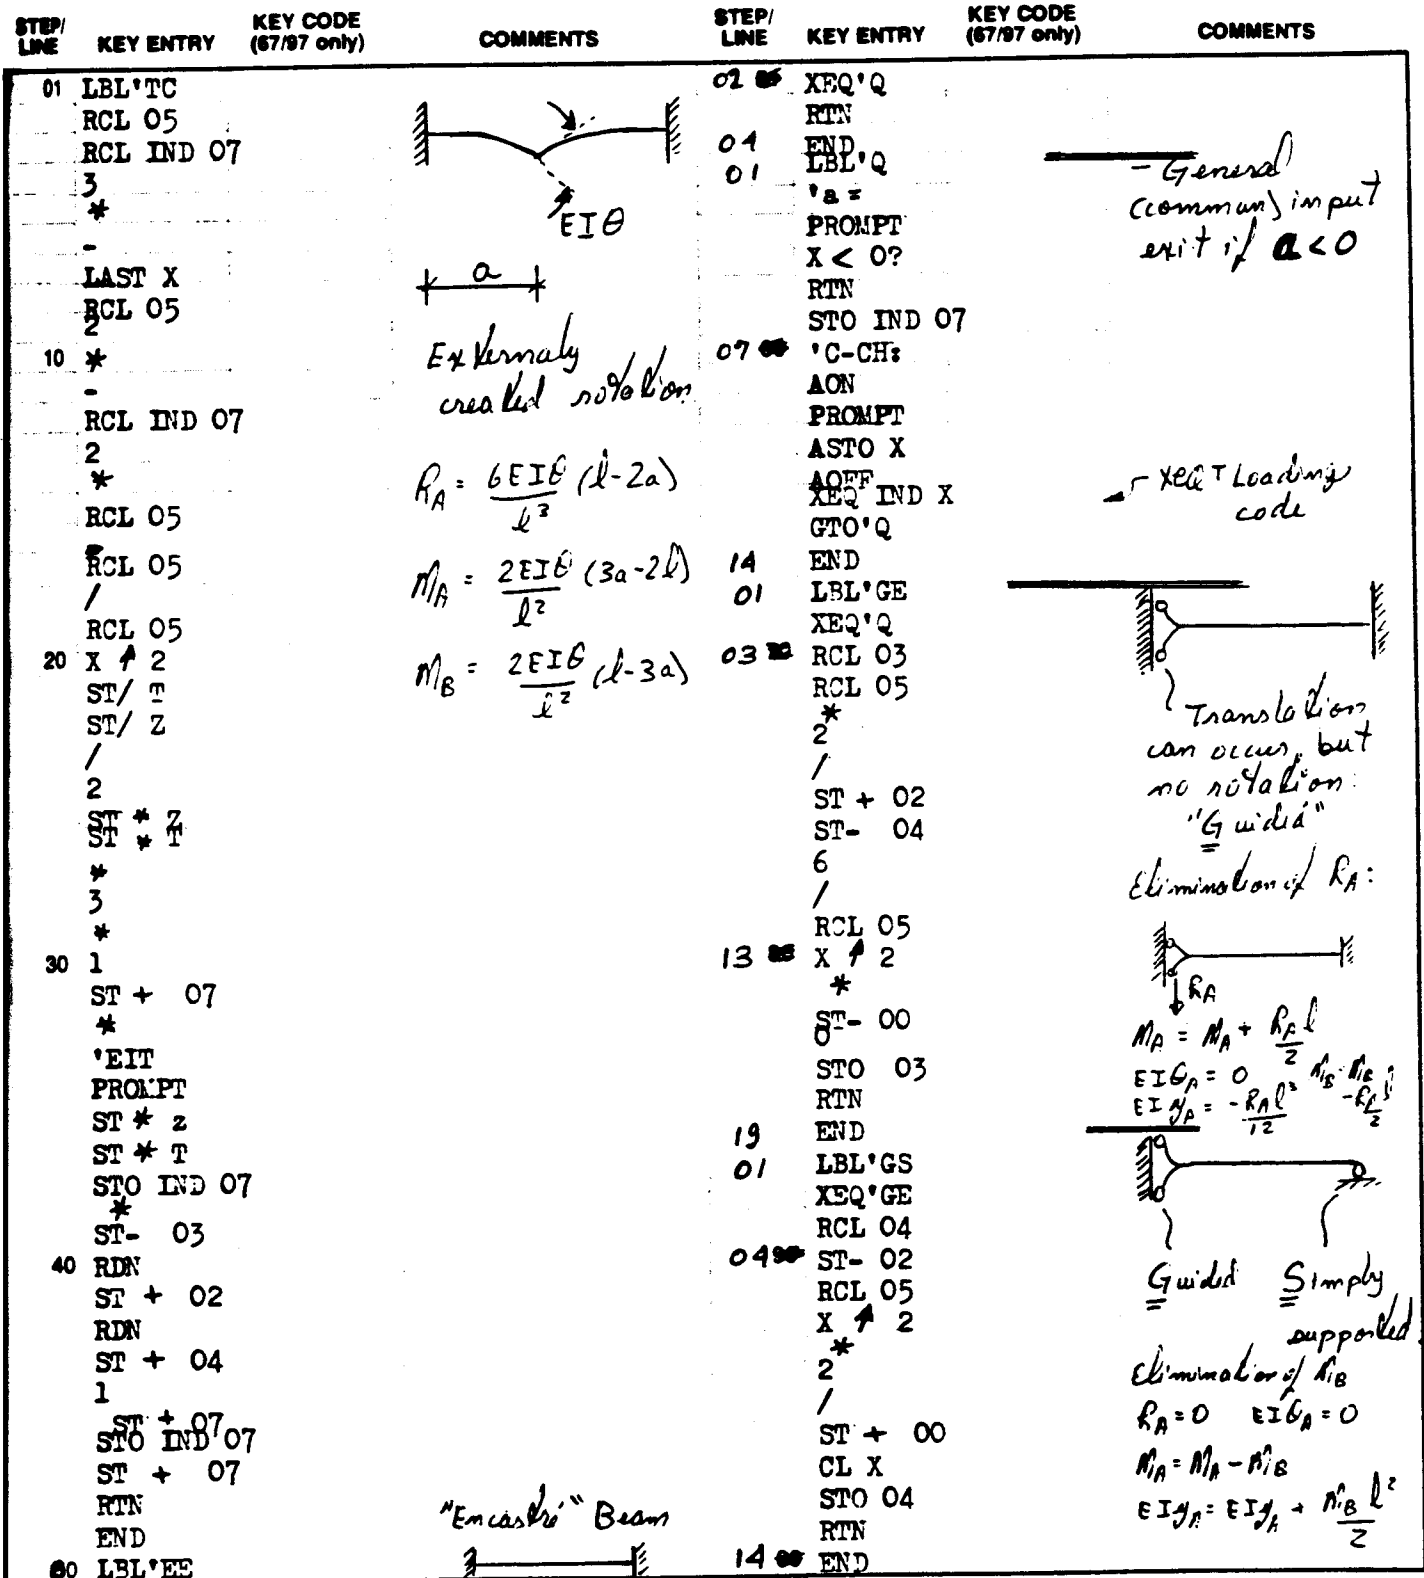 STEP/ LINE KEY ENTRY KEY CODE (67/97 only) COMMENTS
01 LBL'TC
RCL 05
RCL IND 07
3
*
-
LAST X
RCL 05
2
10 *
-
RCL IND 07
2
*
RCL 05
-
RCL 05
/
RCL 05
20 X ↑ 2
ST/ T
ST/ Z
/
2
ST * Z
ST * T
*
3
*
30 1
ST + 07
*
'EIT
PROMPT
ST * z
ST * T
STO IND 07
*
ST- 03
40 RDN
ST + 02
RDN
ST + 04
1
ST + 07
STO IND 07
ST + 07
RTN
END
LBL'EE
EIθ
a
Externaly
created rotation
R_A = 6EIθ/l³ (l-2a)
M_A = 2EIθ/l² (3a-2l)
M_B = 2EIθ/l² (l-3a)
"Encastré" Beam
STEP/ LINE KEY ENTRY KEY CODE (67/97 only) COMMENTS
02 XEQ'Q
RTN
04 END
01 LBL'Q
'a =
PROMPT
X < 0?
RTN
STO IND 07
07 'C-CH:
AON
PROMPT
ASTO X
AOFF
XEQ IND X
GTO'Q
14 END
01 LBL'GE
XEQ'Q
03 RCL 03
RCL 05
*
2
/
ST + 02
ST- 04
6
/
RCL 05
13 X ↑ 2
*
ST- 00
0
STO 03
RTN
19 END
01 LBL'GS
XEQ'GE
RCL 04
04 ST- 02
RCL 05
X ↑ 2
*
2
/
ST + 00
CL X
STO 04
RTN
14 END
- General
(comman) input
exit if a<0
XEQ T Loading
code
Translation
can occur, but
no rotation.
"Guided"
Elimination of R_A:
R_A
M_A = M_A + R_A l/2
EIθ_A = 0
EI y_A = -R_A l³/12
Guided Simply
supported.
Elimination of M_B
R_A = 0 EIθ_A = 0
M_A = M_A - M_B
EI y_A = EI y_A + M_B l²/2